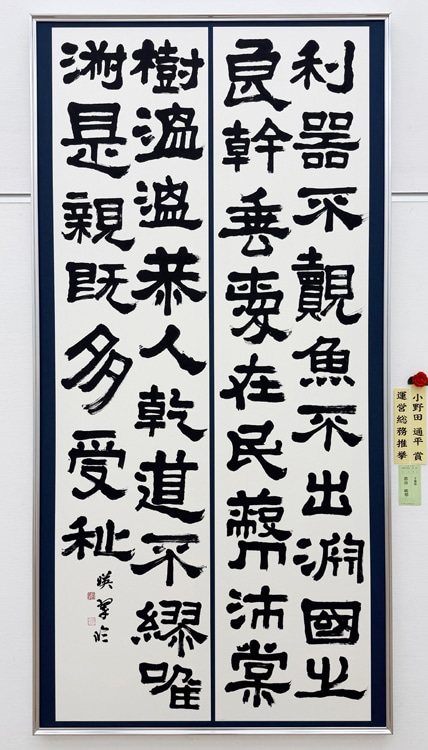 利器不覿魚不出淵國之
良幹垂愛在民蔽沛棠
樹溫溫恭人乾道不繆唯
淑是親既多受祉
暎翠臨
小野田 通平 賞
運営総務推挙